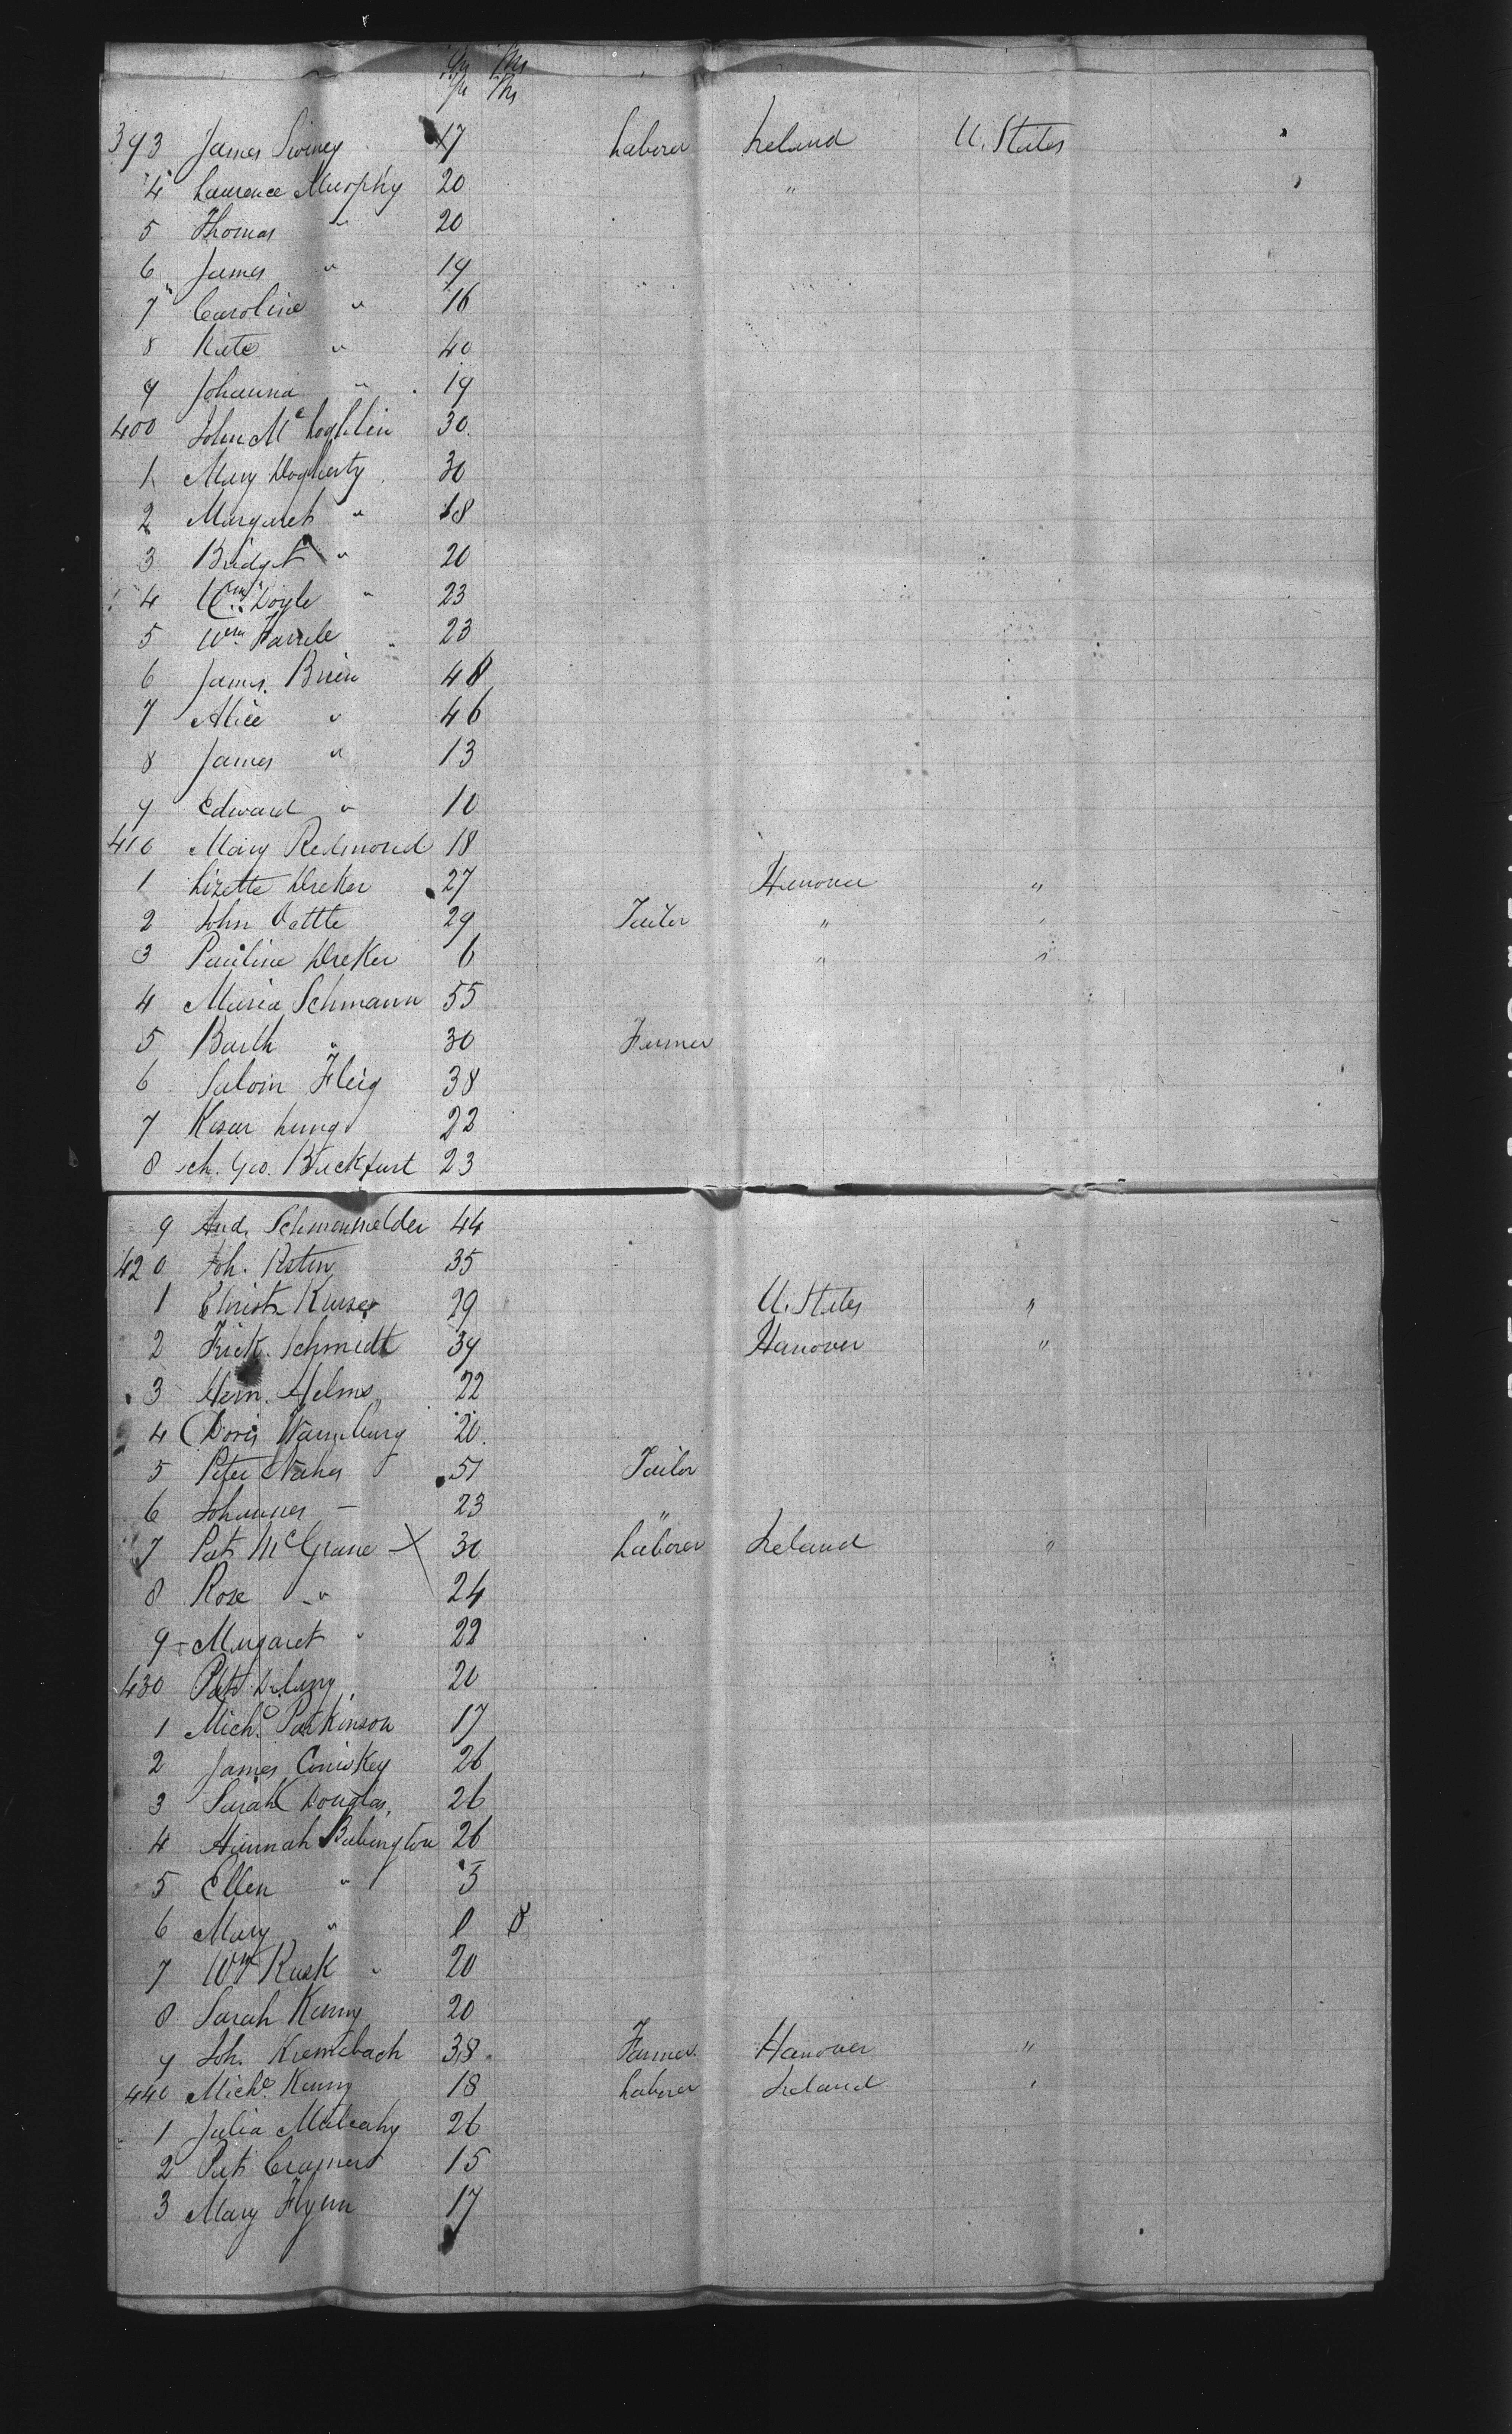 Yr Ms
Yr Ms
393 James Siviney 17 Laborer Ireland U. States
4 Laurence Murphy 20 "
5 Thomas " 20
6 James " 19
7 Caroline " 16
8 Kate " 40
9 Johanna " 19
400 John McLoghlin 30
1 Mary Dogherty 30
2 Margaret " 18
3 Bridget " 20
4 Wm Doyle " 23
5 Wm Farrele " 23
6 James Brien 48
7 Alice " 46
8 James " 13
9 Edward " 10
410 Mary Redmond 18
1 Lizette Dreker 27 Hanover "
2 John Vattte 29 Tailor " "
3 Pauline Dreker 6 " "
4 Maria Schmann 55
5 Barth " 30 Farmer
6 Saloin Fleig 38
7 Kesar Lung 22
8 ch. Geo. Buckfart 23
9 And. Schmonmelder 44
420 Joh. 35 "
1 Christ Kurse 29 U. States "
2 Frick. Schmidt 39 Hanover "
3 Hern. Helms 22
4 Doris Hamburg 20
5 Peter 51 Tailor
6 Johannes — 23 "
7 Pat McGrane X 30 Laborer Ireland "
8 Rose " 24
9 Margaret " 22
430 Pat Delany 20
1 Michl Parkinson 17
2 James Coniskey 26
3 Sarah Douglas, 26
4 Hannah Babington 26
5 Ellen " 5
6 Mary " 0 8
7 Wm Rusk " 20
8 Sarah Kenny 20
9 Joh. Kremsbach 38 Farmer Hanover "
440 Michl Kenny 18 Laborer Ireland "
1 Julia Mulcahy 26
2 Pat Cramer 15
3 Mary Flynn 17